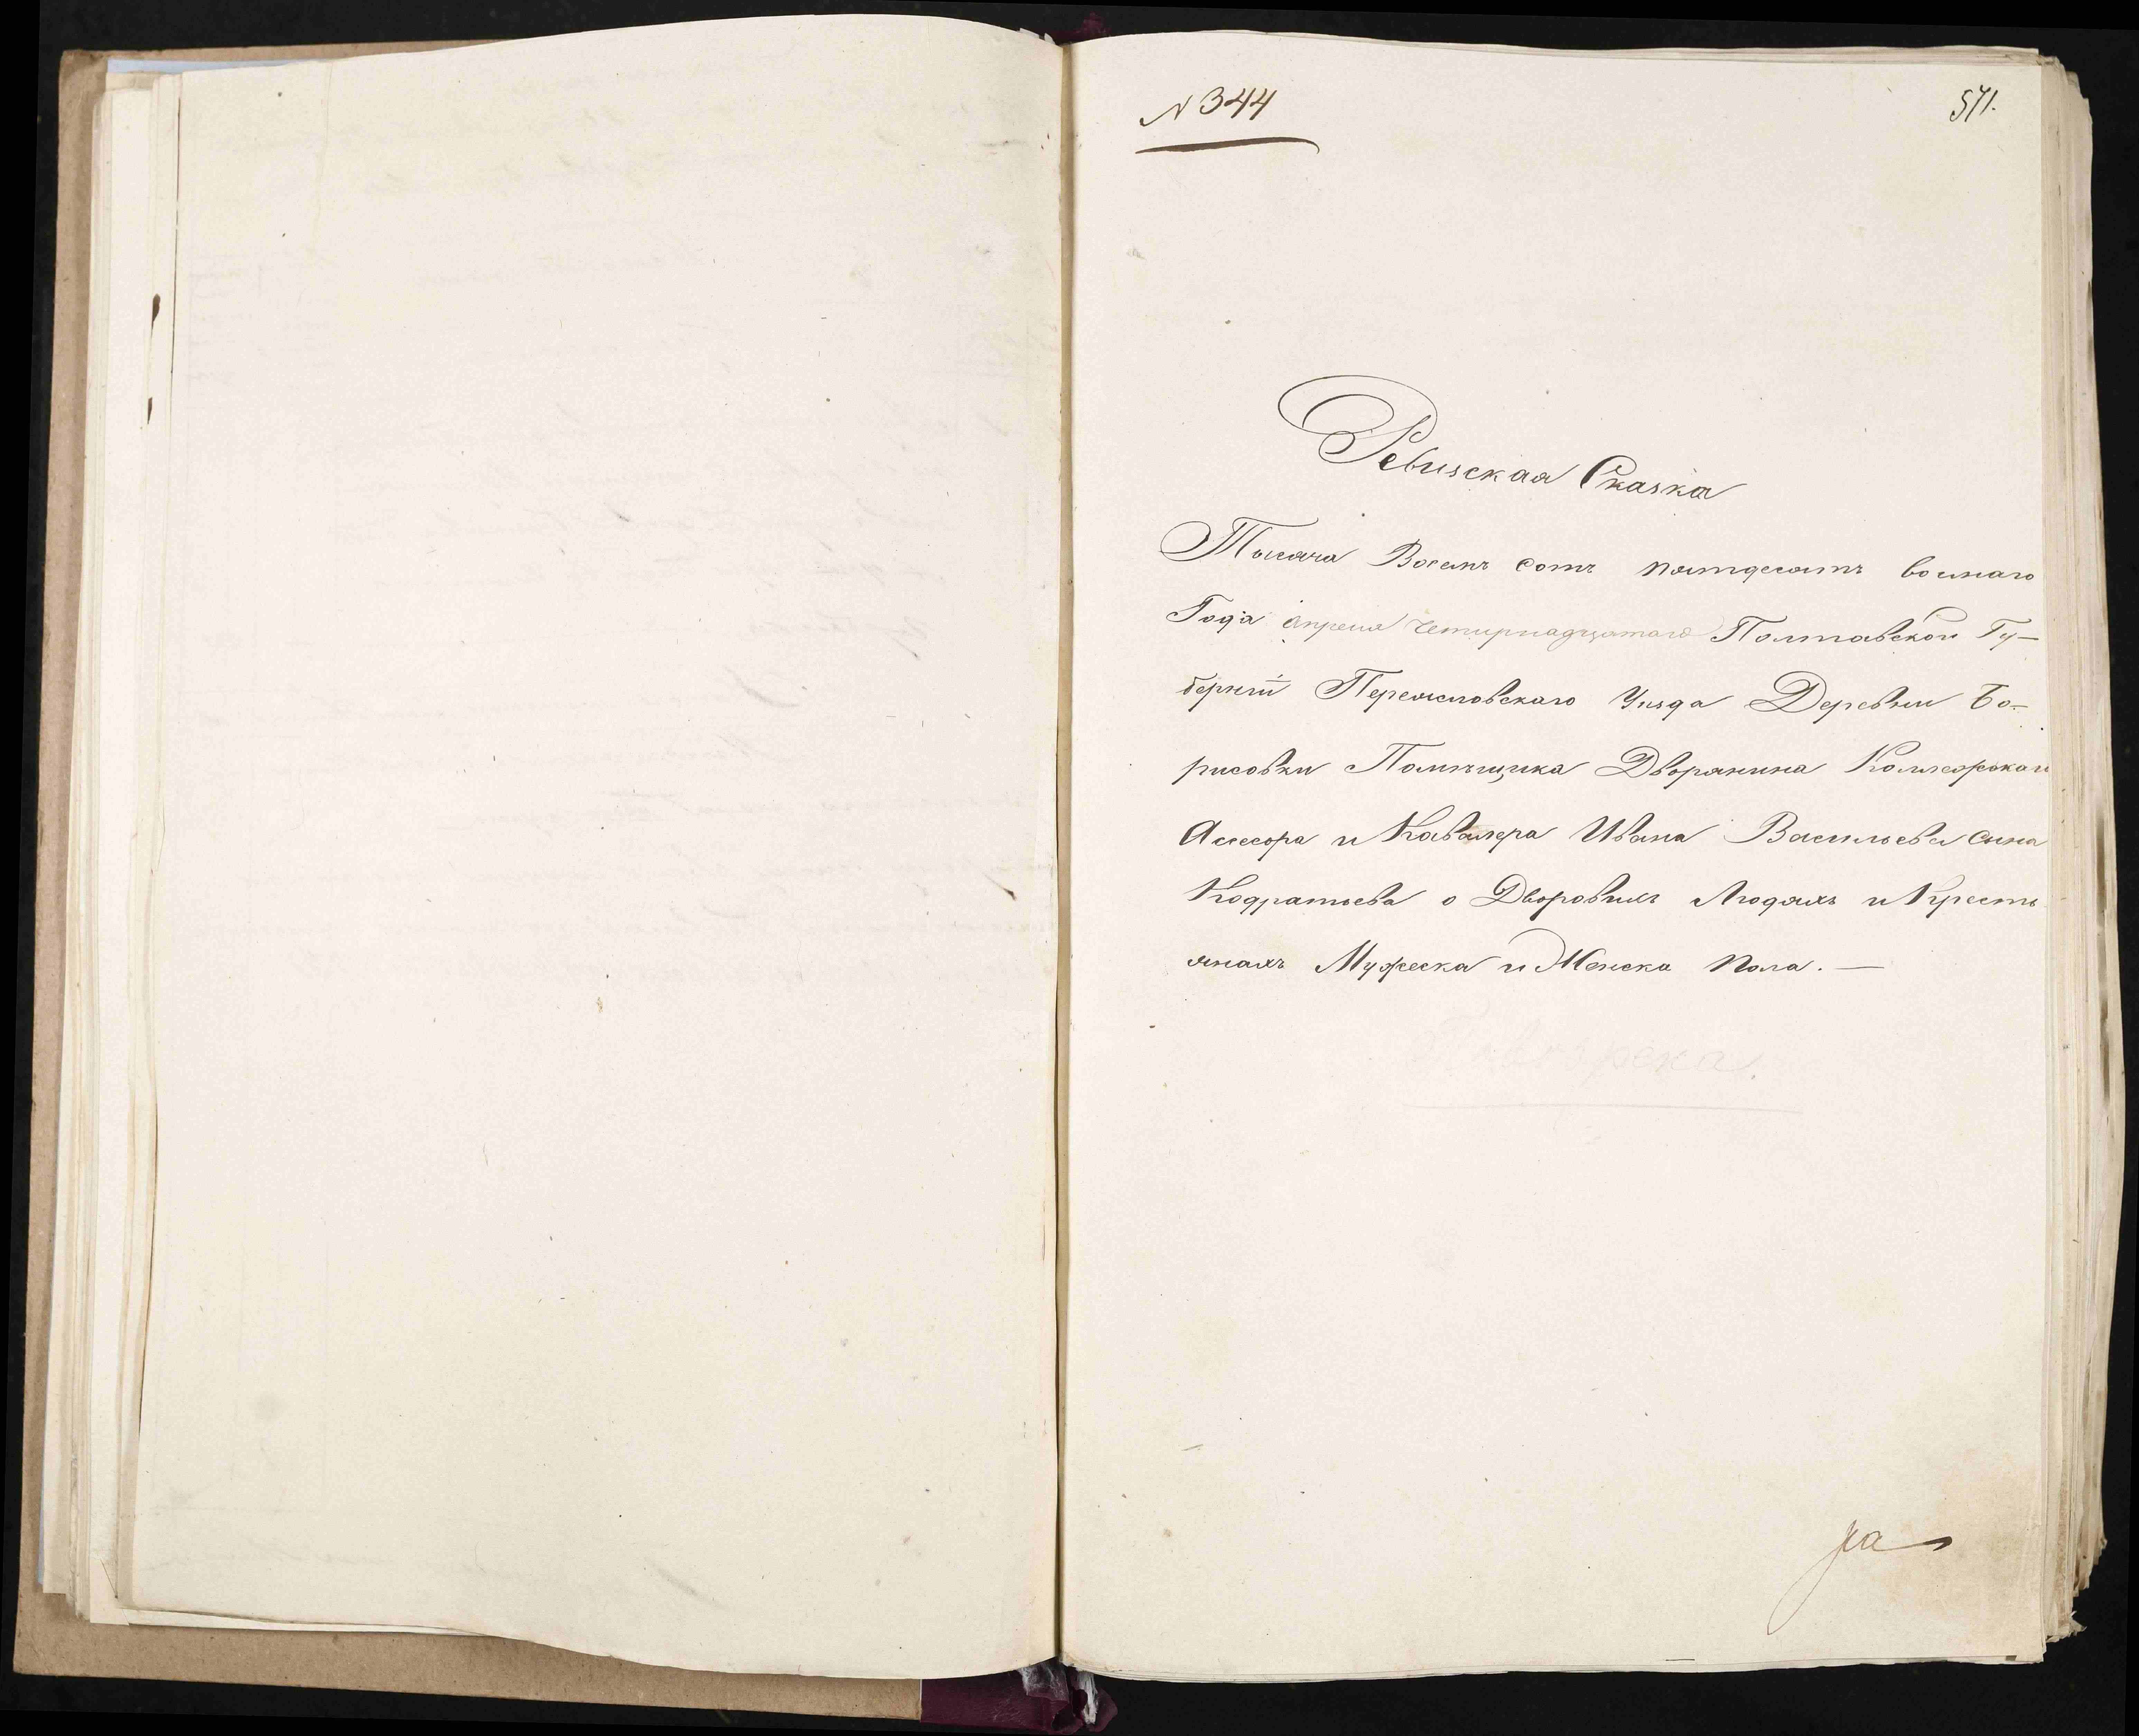 N 344
571.
Ревизская Сказка
Тысяча Восемъ сотъ пятдесятъ восмаго
Года апреля четирнадцатаго Полтавской Гу-
берніи Переяславскаго Уѣзда Деревни Бо-
рисовки Помѣщика Дворянина Колежскаго
Асесора и Кавалера Ивана Васильева сина
Кодратьева о Дворовихъ Людяхъ и Кресть
янахъ Мужеска и Женска пола. —